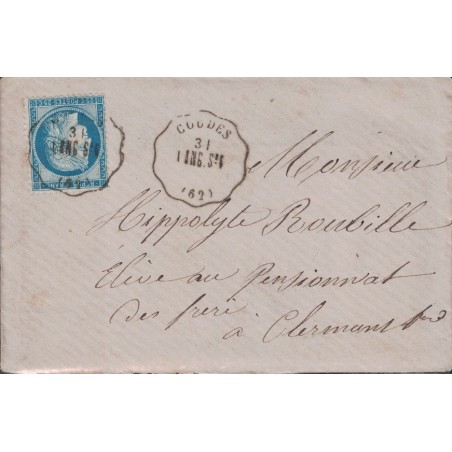 COUDES
31
LANG.St
(62)
Monsieur
Hippolyte Roubille
Elève au Pensionnat
des frères
à Clermont fd